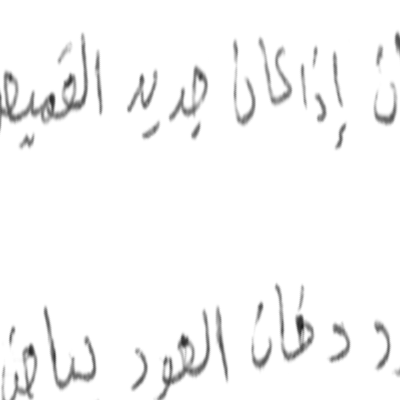 ن إذا كان جديد القميص
د دخان العود